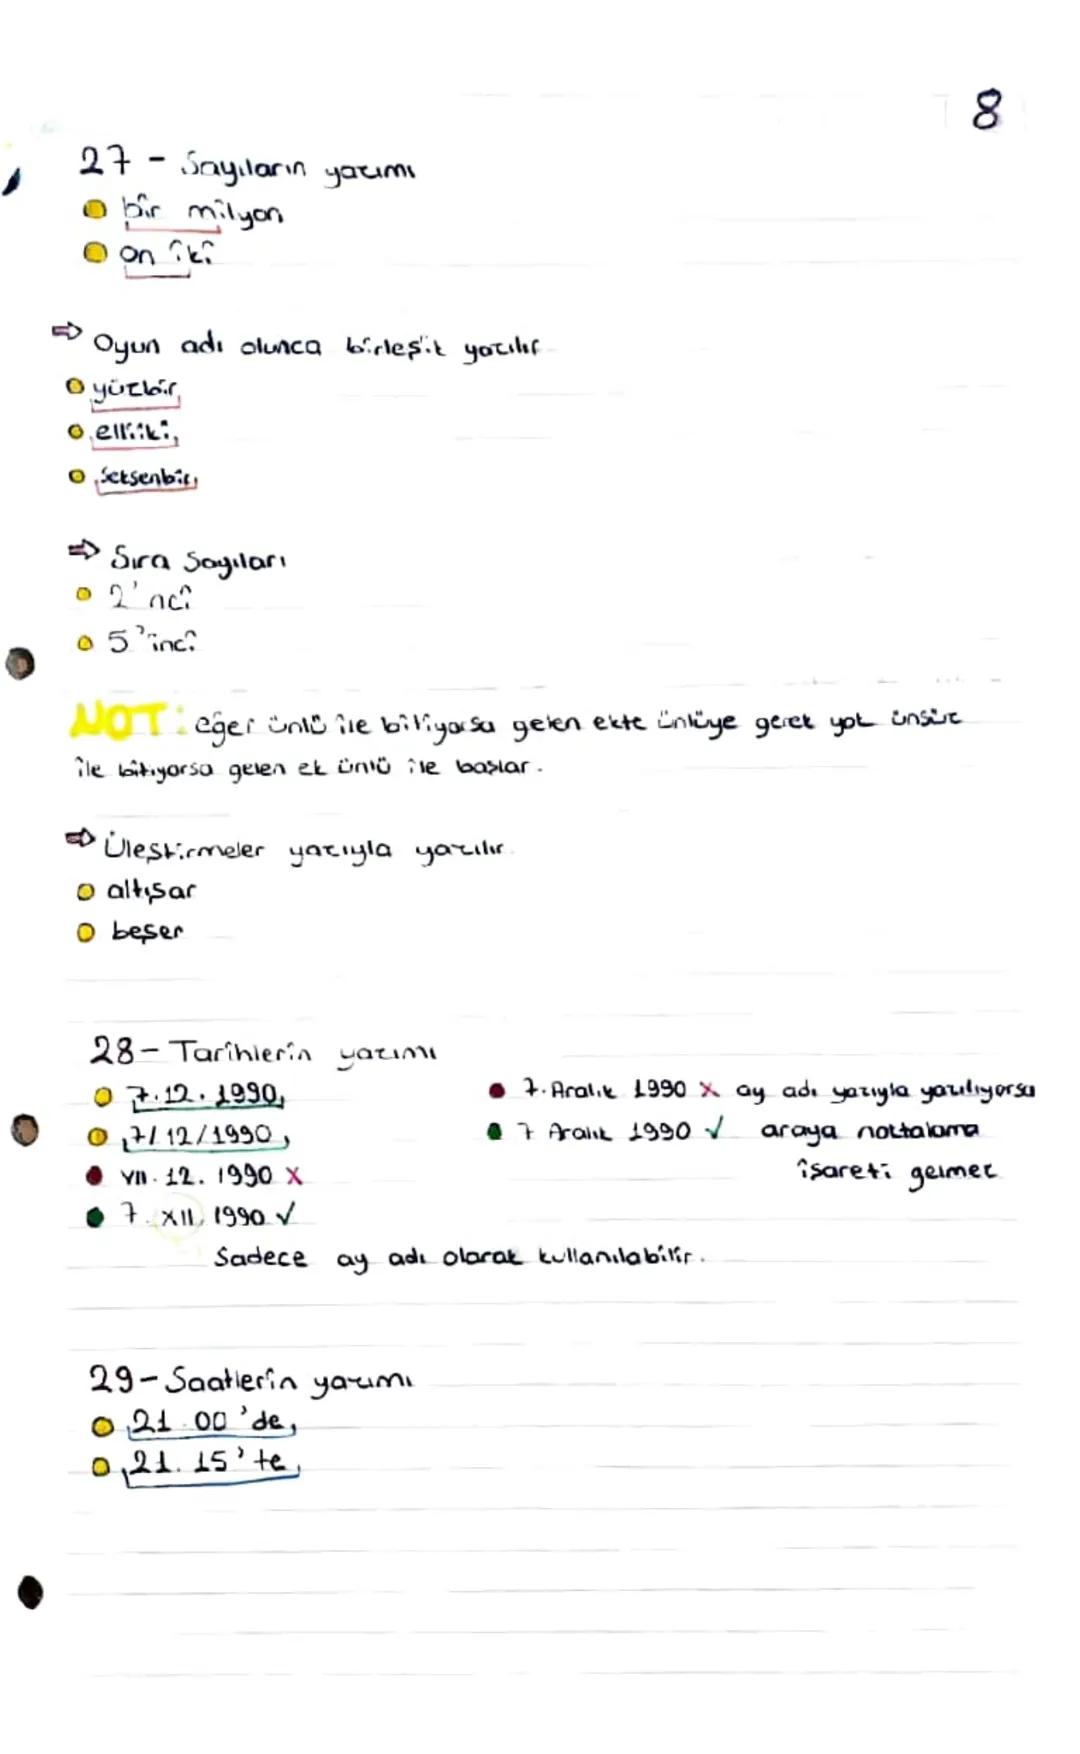 8
27 - Sayıların yazımı
bir milyon
on iki
⇒ Oyun adı olunca birleşik yazılır
yüzbir
elliiki
seksenbir
⇒ Sıra Sayıları
2'nci
5'inci
NOT: eğer ünlü ile bitiyorsa gelen ekte ünlüye gerek yok ünsüz
ile bitiyorsa gelen ek ünlü ile başlar.
⇒ Üleştirmeler yazıyla yazılır.
altışar
beşer
28- Tarihlerin yazımı
7.12.1990
7/12/1990
VII.12.1990 X
7.XII.1990 ✓
Sadece ay adı olarak kullanılabilir.
7.Aralık 1990 X ay adı yazıyla yazılıyorsa
7 Aralık 1990 ✓ araya noktalama
işareti gelmez
29- Saatlerin yazımı
21.00'de
21.15'te